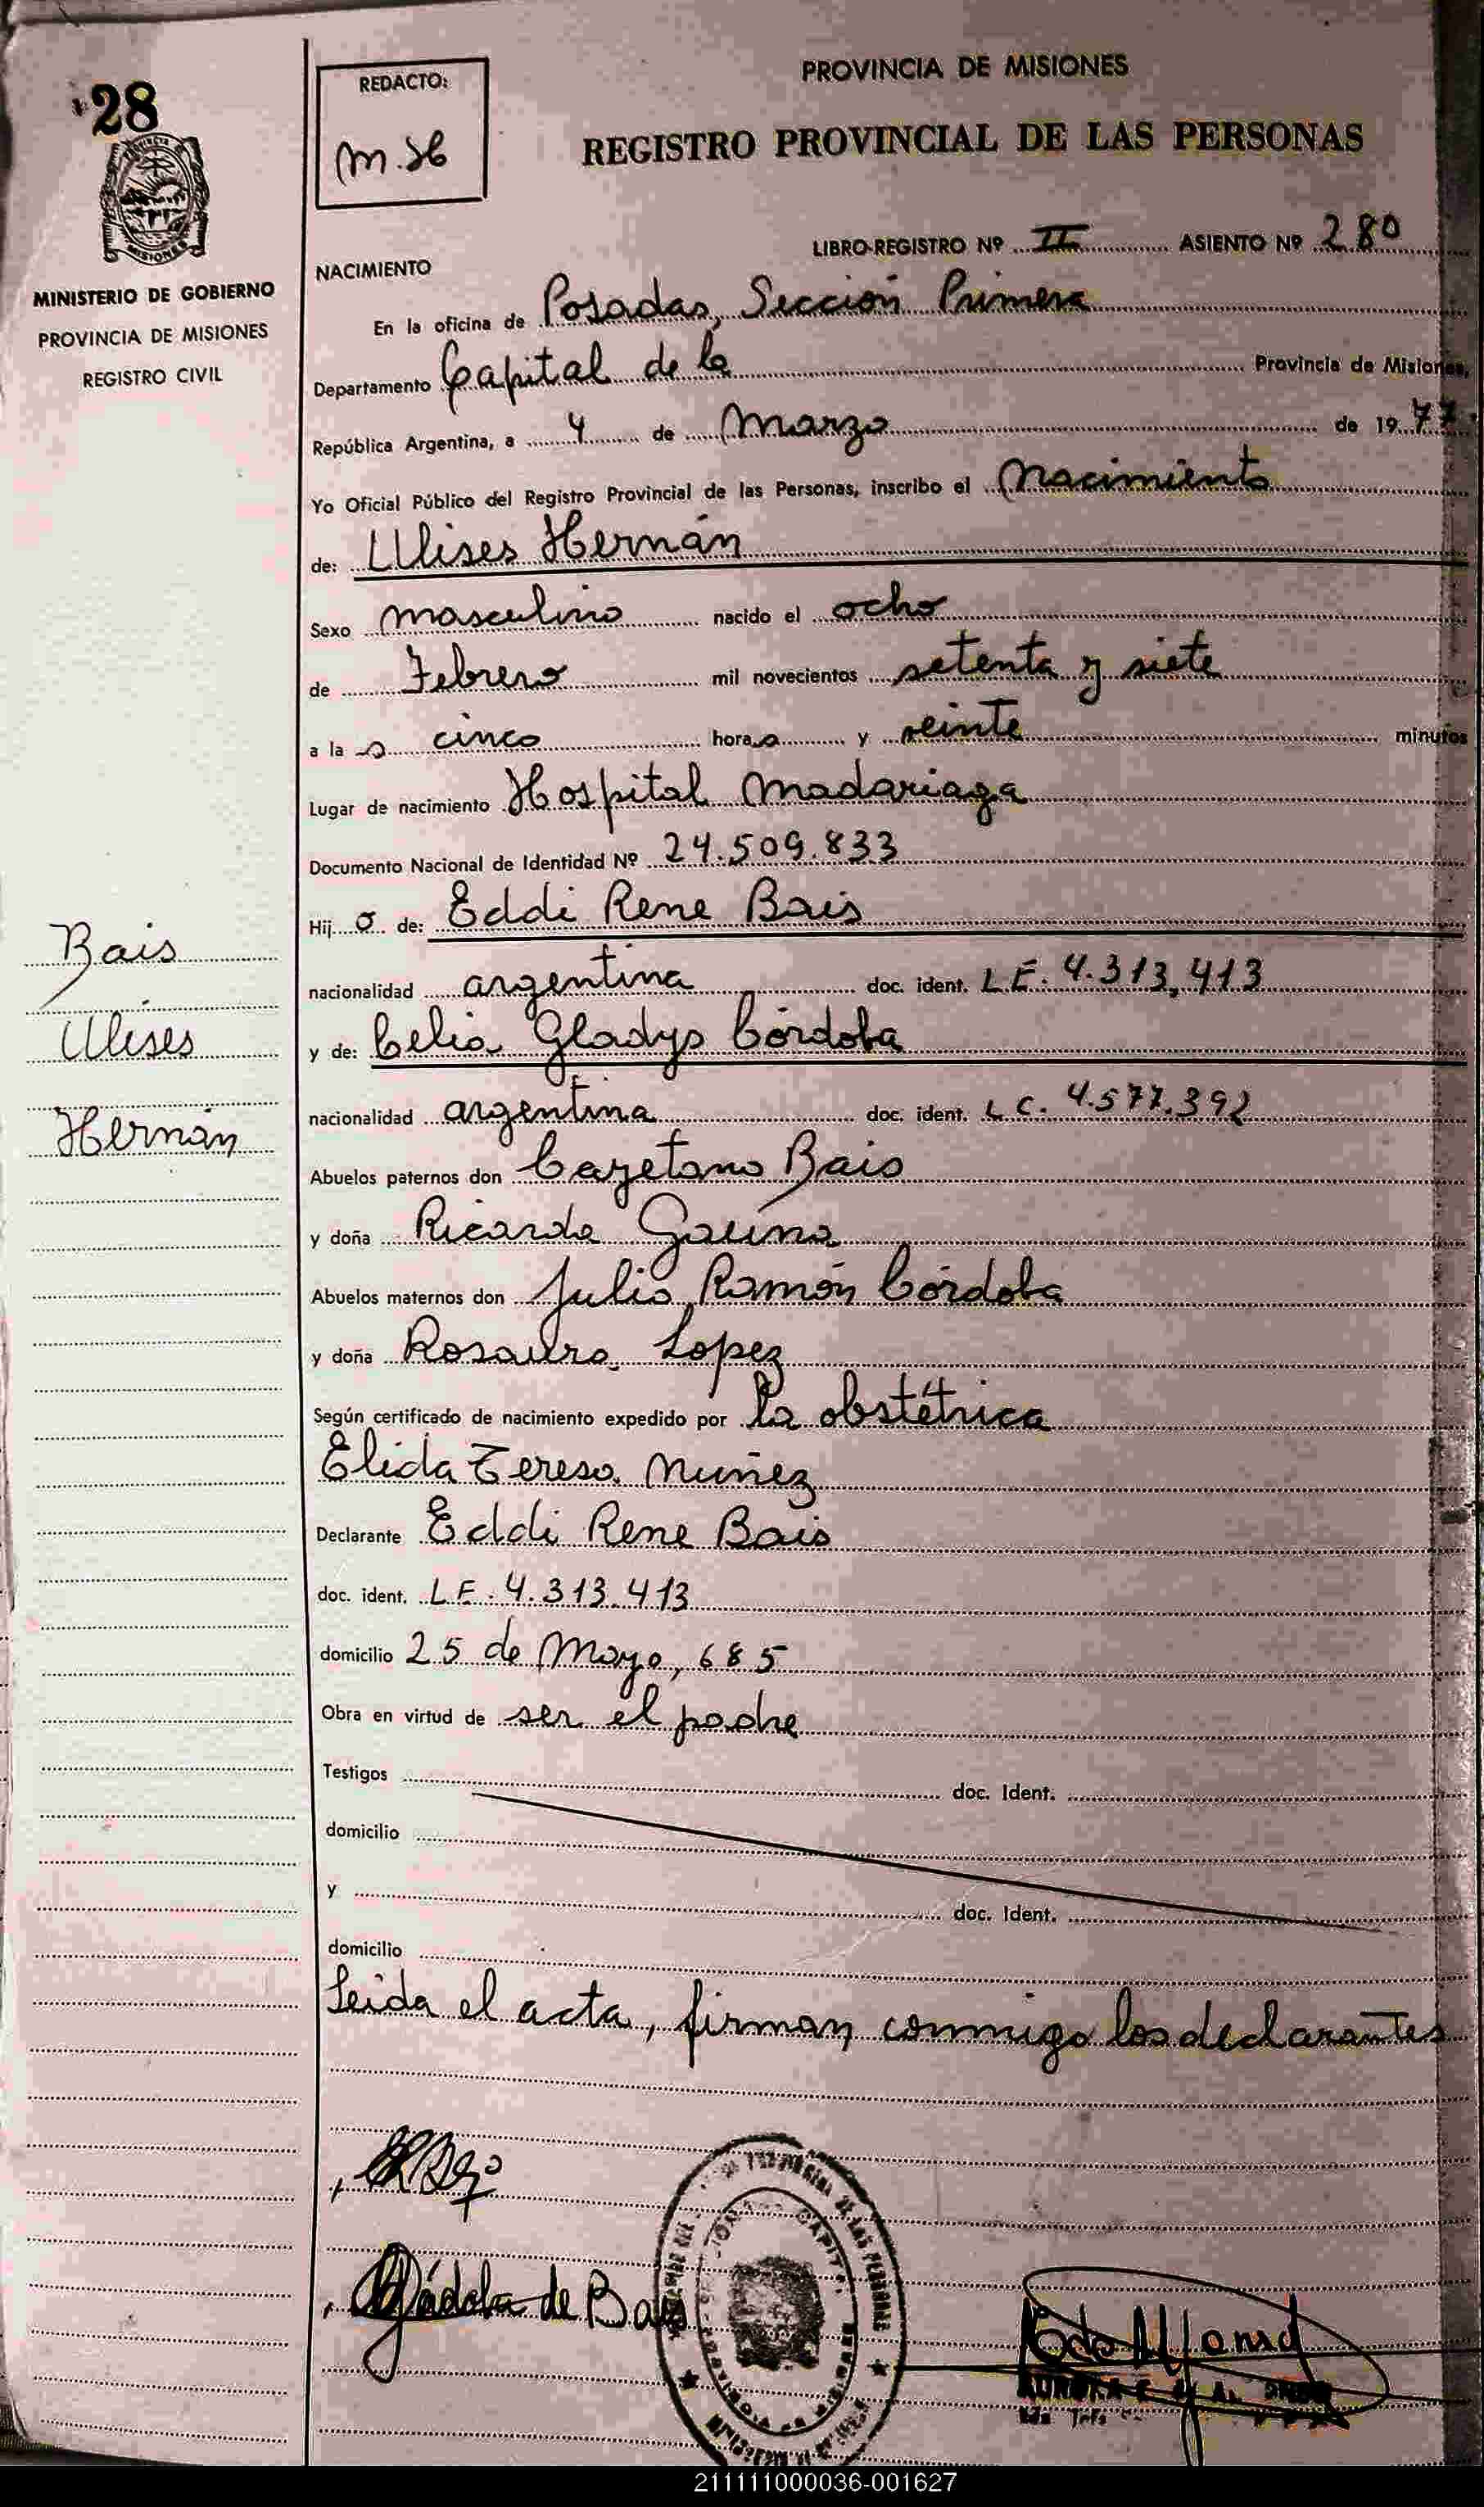 28
MINISTERIO DE GOBIERNO
PROVINCIA DE MISIONES
REGISTRO CIVIL
Bais
Ulises
Hernán
REDACTO:
PROVINCIA DE MISIONES
REGISTRO PROVINCIAL DE LAS PERSONAS
LIBRO-REGISTRO Nº II ASIENTO Nº 280
NACIMIENTO
En la oficina de Posadas, Sección Primera
Departamento Capital de la Provincia de Misiones,
República Argentina, a 4 de Marzo de 1977
Yo Oficial Público del Registro Provincial de las Personas, inscribo el Nacimiento
de: Ulises Hernán
Sexo masculino nacido el ocho
de Febrero mil novecientos setenta y siete
a las cinco horas y veinte minutos
Lugar de nacimiento Hospital Madariaga
Documento Nacional de Identidad Nº 24.509.833
Hijo de: Eddi Rene Bais
nacionalidad argentina doc. ident. L E. 4.313,413
y de: Celia Gladys Córdoba
nacionalidad argentina doc. ident. L C. 4.577.392
Abuelos paternos don Cayetano Bais
y doña Ricarda
Abuelos maternos don Julio Ramón Córdoba
y doña Rosaura Lopez
Según certificado de nacimiento expedido por la obstétrica
Elida Teresa Nuñez
Declarante Eddi Rene Bais
doc. ident. L E. 4.313.413
domicilio 25 de Mayo, 685
Obra en virtud de ser el padre
Testigos doc. Ident.
domicilio
y doc. Ident.
domicilio
Leida el acta, firman conmigo los declarantes
Córdoba de Bais
211111000036-001627